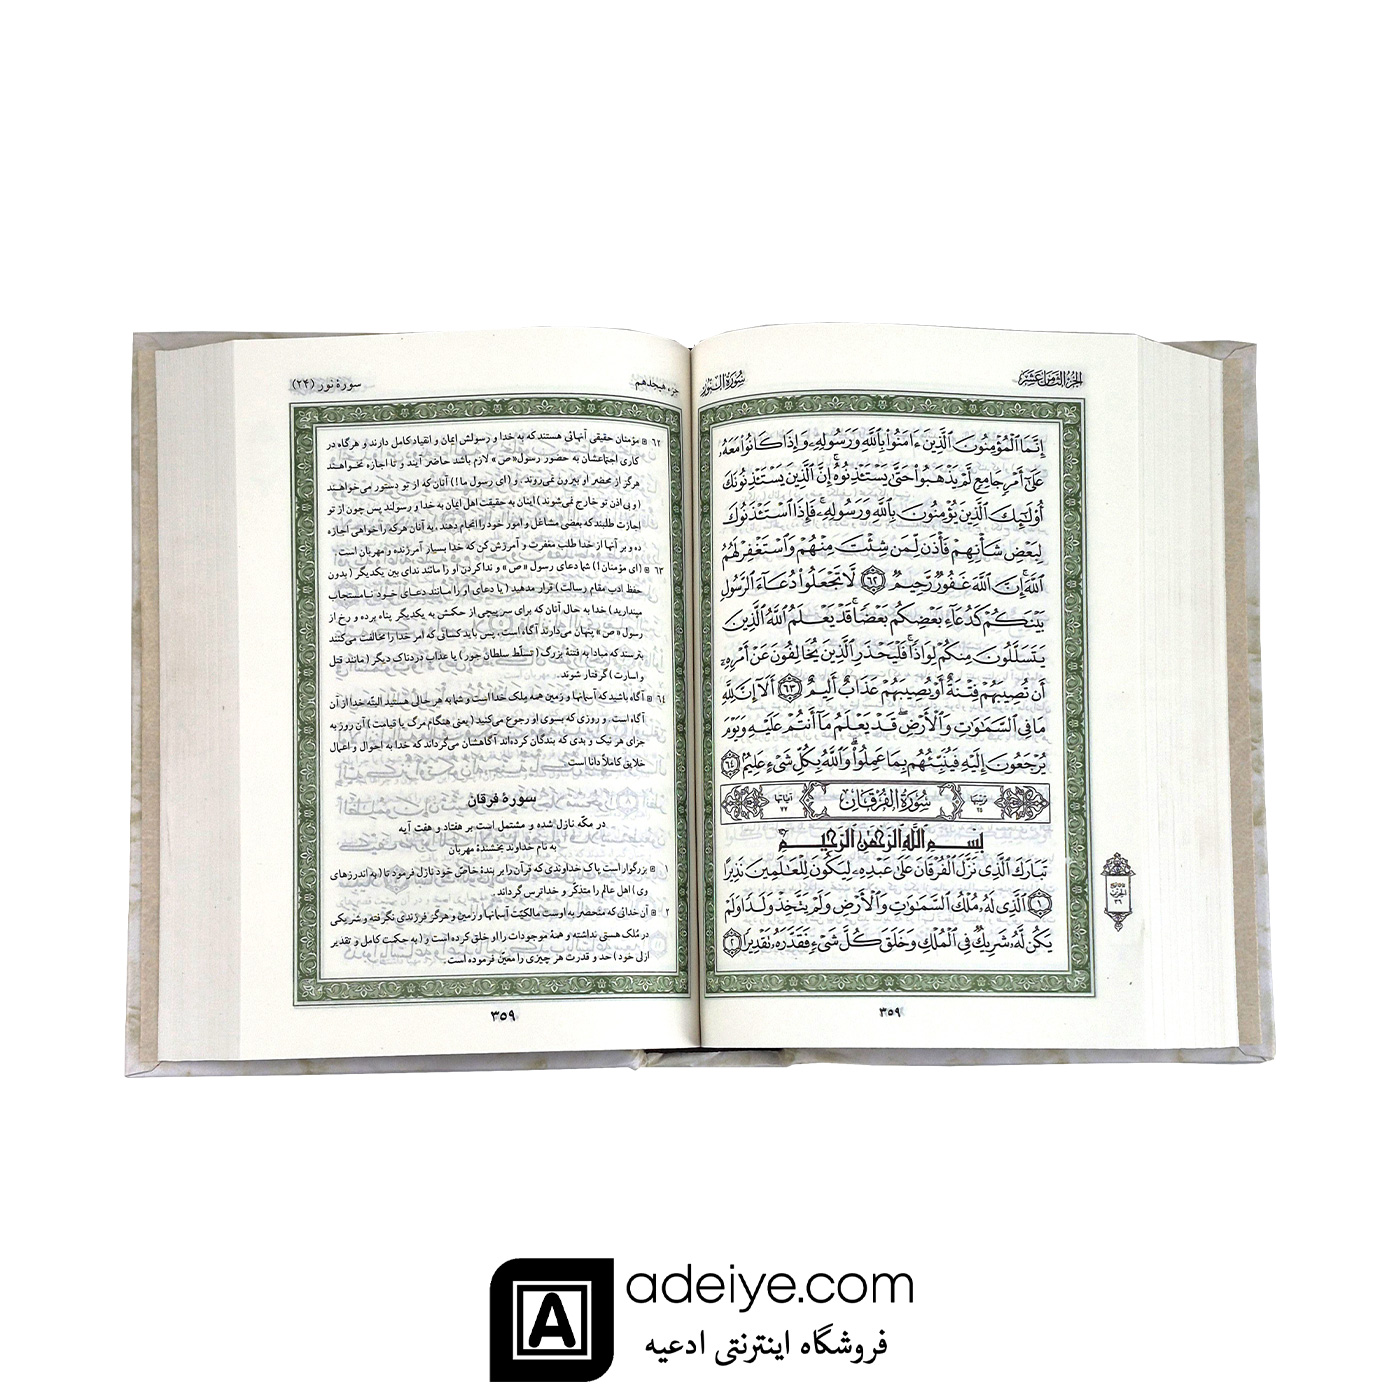 الجزء الثامن عشر
سورة النور
إِنَّمَا ٱلْمُؤْمِنُونَ ٱلَّذِينَ ءَامَنُوا۟ بِٱللَّهِ وَرَسُولِهِۦ وَإِذَا كَانُوا۟ مَعَهُۥ
عَلَىٰٓ أَمْرٍ جَامِعٍ لَّمْ يَذْهَبُوا۟ حَتَّىٰ يَسْتَـْٔذِنُوهُ ۚ إِنَّ ٱلَّذِينَ يَسْتَـْٔذِنُونَكَ
أُو۟لَـٰٓئِكَ ٱلَّذِينَ يُؤْمِنُونَ بِٱللَّهِ وَرَسُولِهِۦ ۚ فَإِذَا ٱسْتَـْٔذَنُوكَ
لِبَعْضِ شَأْنِهِمْ فَأْذَن لِّمَن شِئْتَ مِنْهُمْ وَٱسْتَغْفِرْ لَهُمُ
ٱللَّهَ ۚ إِنَّ ٱللَّهَ غَفُورٌ رَّحِيمٌ ٦٢ لَّا تَجْعَلُوا۟ دُعَآءَ ٱلرَّسُولِ
بَيْنَكُمْ كَدُعَآءِ بَعْضِكُم بَعْضًا ۚ قَدْ يَعْلَمُ ٱللَّهُ ٱلَّذِينَ
يَتَسَلَّلُونَ مِنكُمْ لِوَاذًا ۚ فَلْيَحْذَرِ ٱلَّذِينَ يُخَالِفُونَ عَنْ أَمْرِهِۦٓ
أَن تُصِيبَهُمْ فِتْنَةٌ أَوْ يُصِيبَهُمْ عَذَابٌ أَلِيمٌ ٦٣ أَلَآ إِنَّ لِلَّهِ
مَا فِى ٱلسَّمَـٰوَٰتِ وَٱلْأَرْضِ ۖ قَدْ يَعْلَمُ مَآ أَنتُمْ عَلَيْهِ وَيَوْمَ
يُرْجَعُونَ إِلَيْهِ فَيُنَبِّئُهُم بِمَا عَمِلُوا۟ ۗ وَٱللَّهُ بِكُلِّ شَىْءٍ عَلِيمٌ ٦٤
ترتيبها ٢٥ سُورَةُ الفُرْقَانِ آياتها ٧٧
بِسْمِ ٱللَّهِ ٱلرَّحْمَـٰنِ ٱلرَّحِيمِ
تَبَارَكَ ٱلَّذِى نَزَّلَ ٱلْفُرْقَانَ عَلَىٰ عَبْدِهِۦ لِيَكُونَ لِلْعَـٰلَمِينَ نَذِيرًا
١ ٱلَّذِى لَهُۥ مُلْكُ ٱلسَّمَـٰوَٰتِ وَٱلْأَرْضِ وَلَمْ يَتَّخِذْ وَلَدًا وَلَمْ
يَكُن لَّهُۥ شَرِيكٌ فِى ٱلْمُلْكِ وَخَلَقَ كُلَّ شَىْءٍ فَقَدَّرَهُۥ تَقْدِيرًا ٢
٣٥٩
جزء هیجدهم
سورهٔ نور (۲۴)
۶۲ مؤمنان حقیقی آنهائی هستند که به خدا و رسولش ایمان و انقیاد کامل دارند و هرگاه در
کاری اجتماعشان به حضور رسول«ص» لازم باشد حاضر آیند و تا اجازه نخواهند
هرگز از محضر او بیرون نمی‌روند. و (ای رسول ما!) آنان که از تو دستور می‌خواهند
(و بی اذن تو خارج نمی‌شوند) اینان به حقیقت اهل ایمان به خدا و رسولند پس چون از تو
اجازت طلبند که بعضی مشاغل و امور خود را انجام دهند، به آنان هرکه را خواهی اجازه
ده و بر آنها از خدا طلب مغفرت و آمرزش کن که خدا بسیار آمرزنده و مهربان است.
۶۳ (ای مؤمنان!) شما دعای رسول «ص» و ندا کردن او را مانند ندای بین یکدیگر (بدون
حفظ ادب مقام رسالت) قرار مدهید (یا دعای او را مانند دعای خود نامستجاب
مپندارید) خدا به حال آنان که برای سرپیچی از حکمش به یکدیگر پناه برده و رخ از
رسول «ص» پنهان می‌دارند آگاه است، پس باید کسانی که امر خدا را مخالفت می‌کنند
بترسند که مبادا به فتنهٔ بزرگ (تسلّط سلطان جور) یا عذاب دردناک دیگر (مانند قتل
و اسارت) گرفتار شوند.
۶۴ آگاه باشید که آسمانها و زمین همه ملک خدا است و شما به هر حالی هستید البتّه خدا از آن
آگاه است. و روزی که بسوی او رجوع می‌کنید (یعنی هنگام مرگ یا قیامت) آن روز به
جزای هر نیک و بدی که بندگان کرده‌اند آگاهشان می‌گرداند که خدا به احوال و اعمال
خلایق کاملاً دانا است.
سورهٔ فرقان
در مکّه نازل شده و مشتمل است بر هفتاد و هفت آیه
به نام خداوند بخشندهٔ مهربان
۱ بزرگوار است پاک خداوندی که قرآن را بر بندهٔ خاصّ خود نازل فرمود تا (به اندرزهای
وی) اهل عالم را متذکّر و خداترس گرداند.
۲ آن خدائی که منحصر به اوست مالکیّت آسمانها و زمین و هرگز فرزندی نگرفته و شریکی
در مُلک هستی نداشته و همهٔ موجودات را او خلق کرده است و (به حکمت کامل و تقدیر
ازلی خود) حد و قدرت هر چیزی را معیّن فرموده است.
۳۵۹
A
adeiye.com
فروشگاه اینترنتی ادعیه